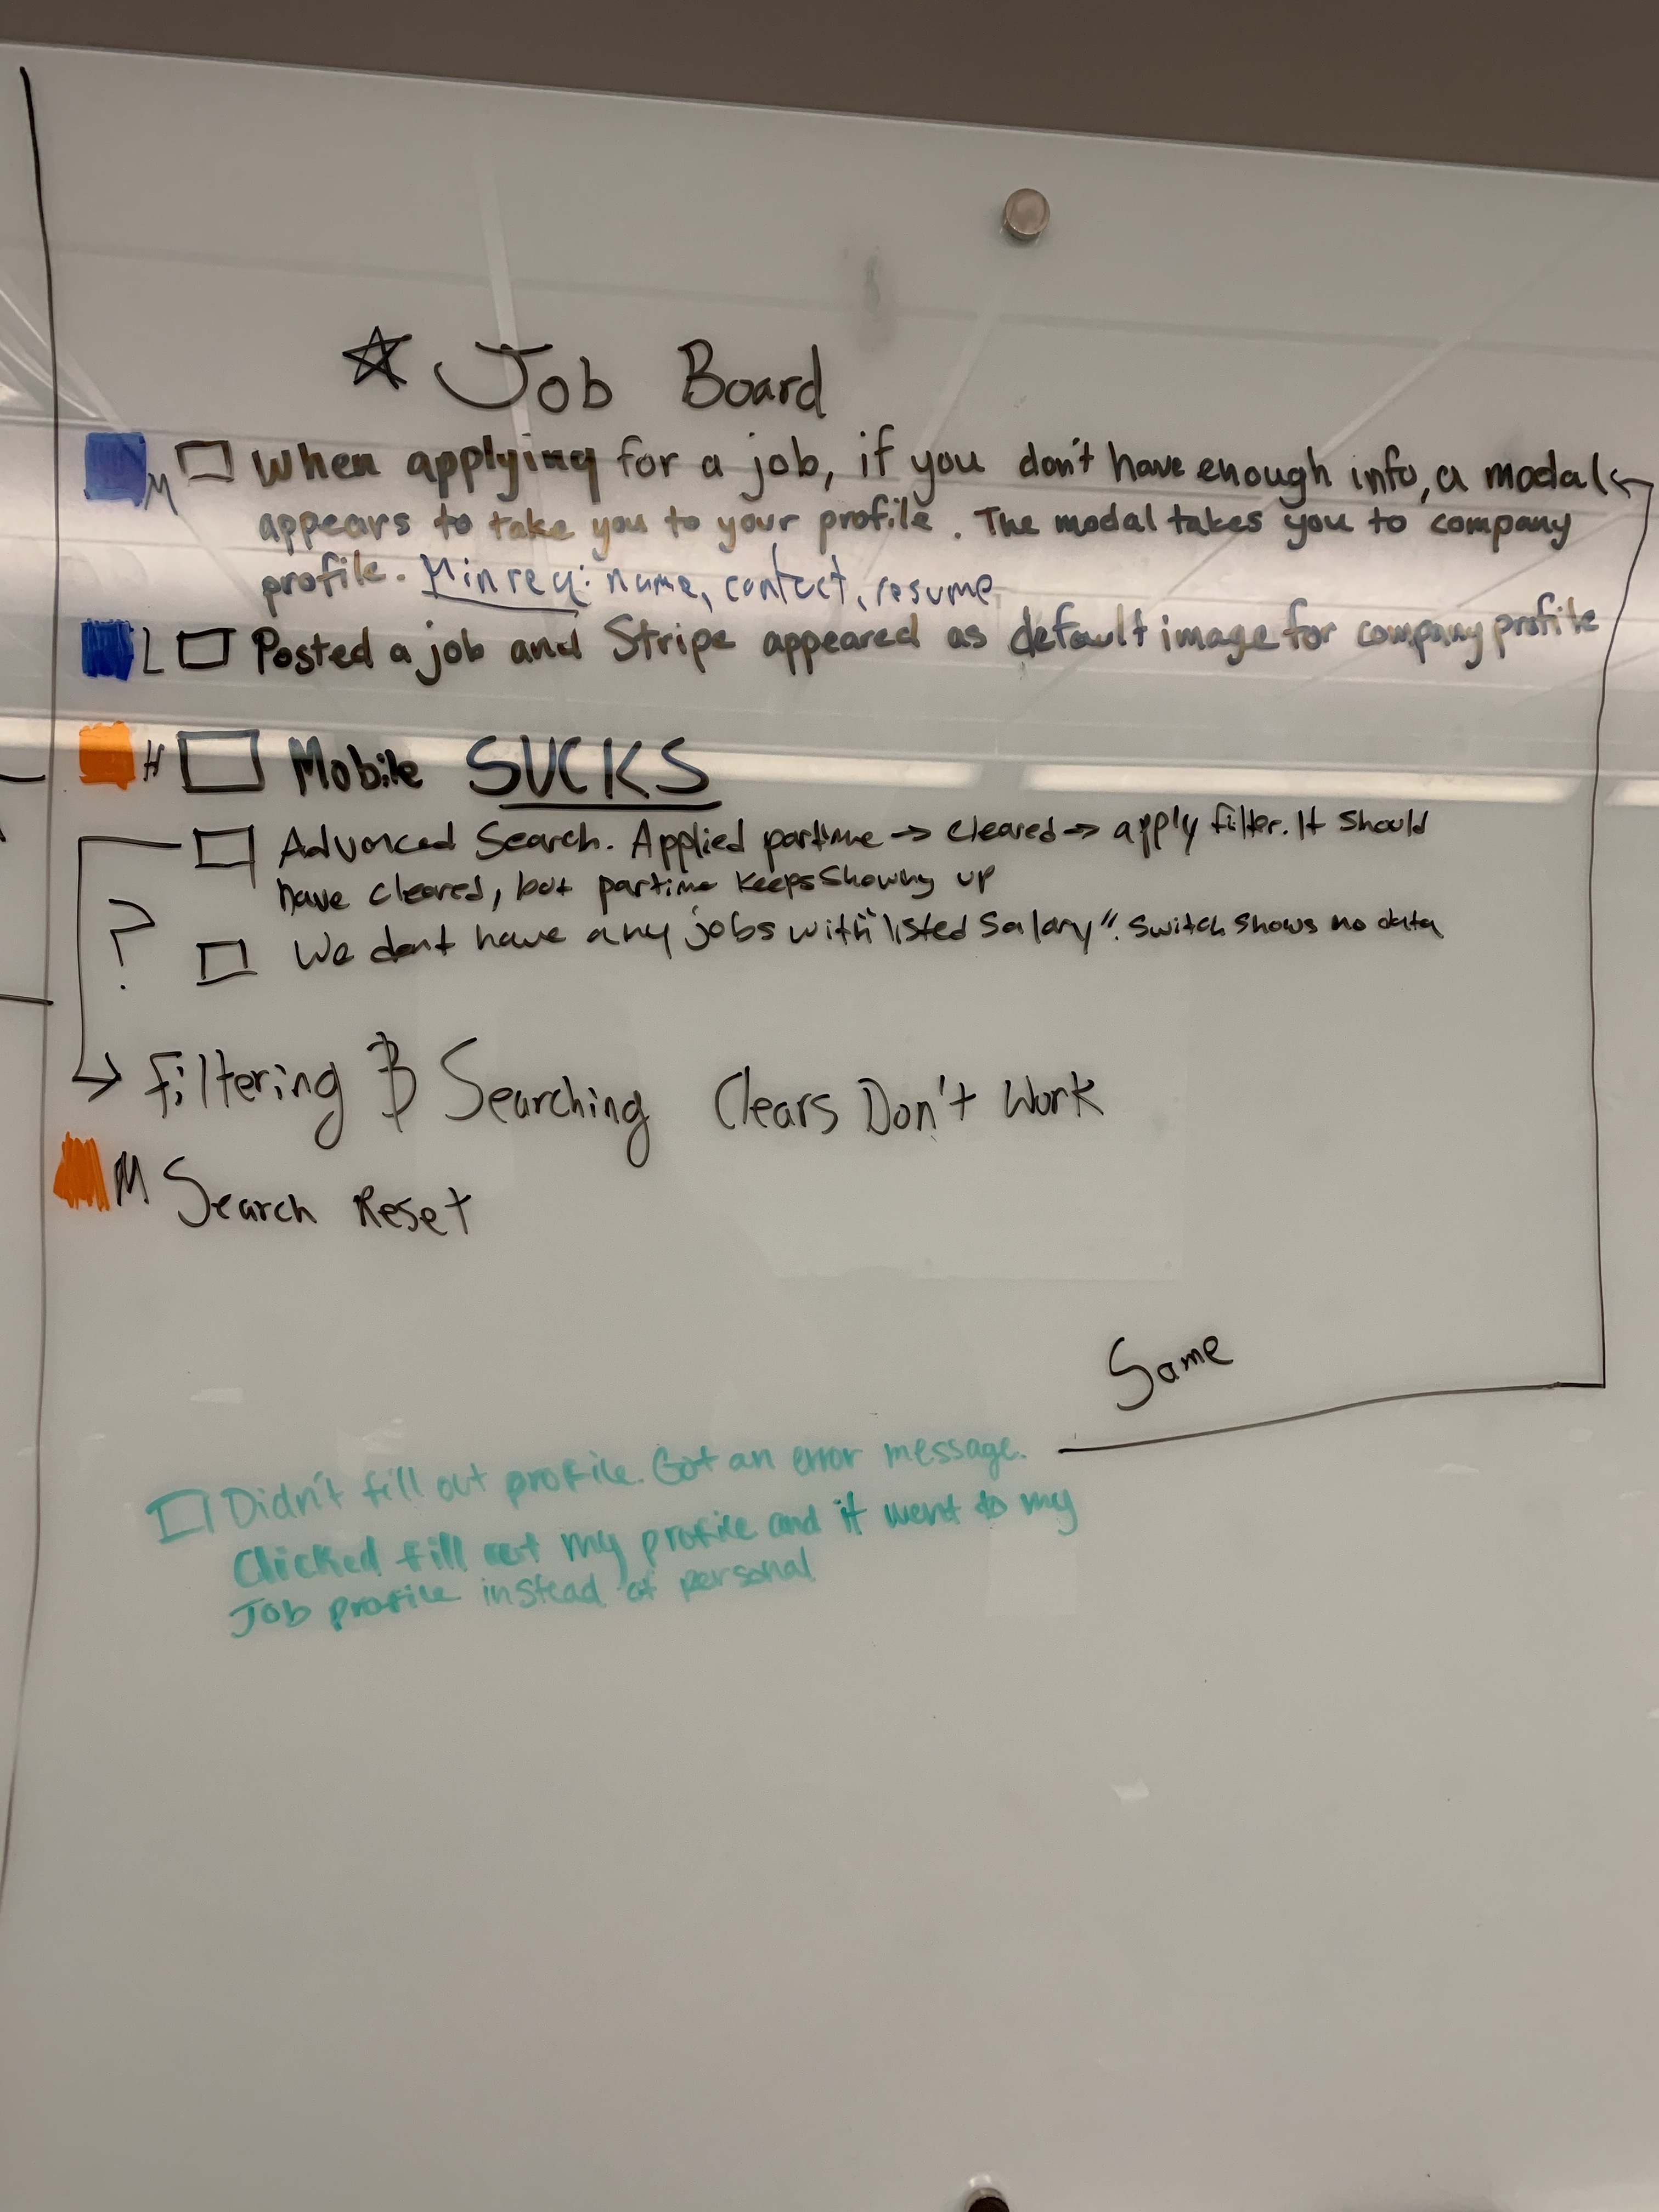 ☆ Job Board
M ☐ When applying for a job, if you don't have enough info, a modal
appears to take you to your profile. The modal takes you to company
profile. Min req: name, contact, resume
L ☐ Posted a job and Stripe appeared as default image for company profile
H ☐ Mobile SUCKS
☐ Advanced Search. Applied partime → cleared → apply filter. It should
have cleared, but partime keeps showing up
?
☐ We dont have any jobs with "listed salary". Switch shows no data
→ Filtering & Searching Clears Don't Work
M Search Reset
Same
☐ Didn't fill out profile. Got an error message.
Clicked fill out my profile and it went to my
Job profile instead of personal